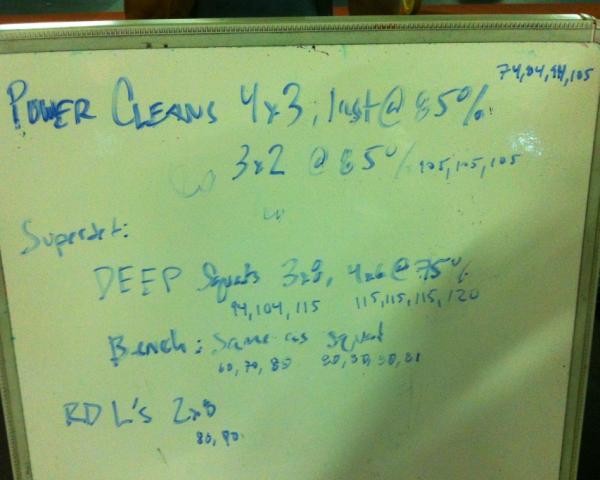 74, 84, 94, 105
POWER CLEANS 4x3, last @ 85%
3x2 @ 85% 105, 105, 105
Superset:
DEEP Squats 3x8, 4x6 @ 75%
94, 104, 115 115, 115, 115, 120
Bench: Same as squat
60, 70, 80
RDL's 2x8
80, 90